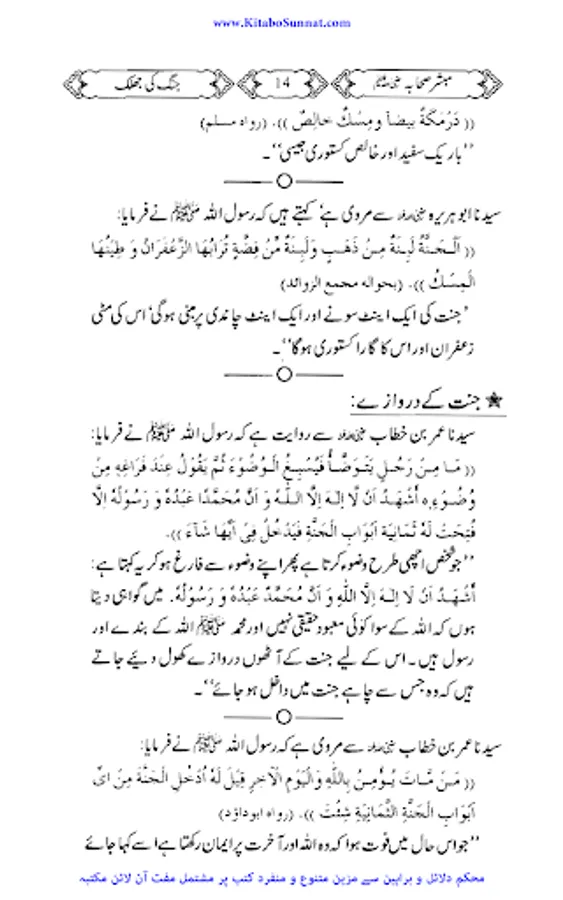 www.KitaboSunnat.com
مبشر صحابہ رضی اللہ عنہم 14 جنت کی جھلک
(( دَرْمَكَةٌ بيضاَ ومِسْكٌ خالِصٌ )). (رواه مسلم)
’’باریک سفید اور خالص کستوری جیسی‘‘۔
سیدنا ابو ہریرہ رضی اللہ عنہ سے مروی ہے‘ کہتے ہیں کہ رسول اللہ ﷺ نے فرمایا:
(( اَلْجَنَّةُ لَبِنَةٌ مِنْ ذَهَبٍ وَلَبِنَةٌ مِّنْ فِضَّةٍ تُرَابُهَا الزَّعْفَرَانُ وَ طِيْنُهَا
الْمِسْكُ )). (بحواله مجمع الزوائد)
’جنت کی ایک اینٹ سونے اور ایک اینٹ چاندی پر مبنی ہوگی‘ اس کی مٹی
زعفران اور اس کا گارا کستوری ہوگا‘‘۔
★ جنت کے دروازے:
سیدنا عمر بن خطاب رضی اللہ عنہ سے روایت ہے کہ رسول اللہ ﷺ نے فرمایا:
(( مَا مِنْ رَجُلٍ يَتَوَضَّأُ فَيُسْبِغُ الْوُضُوْءَ ثُمَّ يَقُوْلُ عِنْدَ فَرَاغِهِ مِنْ
وُضُوْءِهِ أَشْهَدُ اَنْ لَا إِلٰهَ إِلَّا اللّٰهُ وَ اَنَّ مُحَمَّدًا عَبْدُهُ وَ رَسُوْلُهُ إِلَّا
فُتِحَتْ لَهُ ثَمَانِيَةُ اَبْوَابِ الْجَنَّةِ فَيَدْخُلُ فِيْ اَيِّهَا شَآءَ )).
’’جو شخص اچھی طرح وضوء کرتا ہے پھر اپنے وضوء سے فارغ ہو کر یہ کہتا ہے:
أَشْهَدُ اَنْ لَا اِلٰهَ اِلَّا اللهِ وَ اَنَّ مُحَمَّدً عَبْدُهُ وَ رَسُوْلُهُ. میں گواہی دیتا
ہوں کہ اللہ کے سوا کوئی معبود حقیقی نہیں اور محمد ﷺ اللہ کے بندے اور
رسول ہیں۔ اس کے لیے جنت کے آٹھوں دروازے کھول دیئے جاتے
ہیں کہ وہ جس سے چاہے جنت میں داخل ہو جائے‘‘۔
سیدنا عمر بن خطاب رضی اللہ عنہ سے مروی ہے کہ رسول اللہ ﷺ نے فرمایا:
(( مَنْ مَّاتَ يُؤْمِنُ بِاللّٰهِ وَالْيَوْمِ الْآخِرِ قِيْلَ لَهُ اُدْخُلِ الْجَنَّةَ مِنْ اَىِّ
اَبْوَابِ الْجَنَّةِ الثَّمَانِيَةِ شِئْتَ )). (رواه ابوداؤد)
’’جو اس حال میں فوت ہوا کہ وہ اللہ اور آخرت پر ایمان رکھتا ہے اسے کہا جائے
محکم دلائل و براہین سے مزین متنوع و منفرد کتب پر مشتمل مفت آن لائن مکتبہ